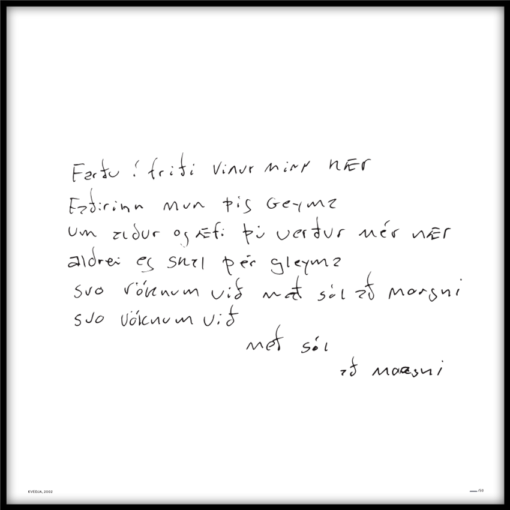 Farðu í friði vinur minn NÆR
Faðirinn mun þig Geyma
Um aldur og Æfi þú verður mér NÆR
aldrei eg skal þér gleyma
svo vöknum við með sól að morgni
svo vöknum við
með sól
að morgni